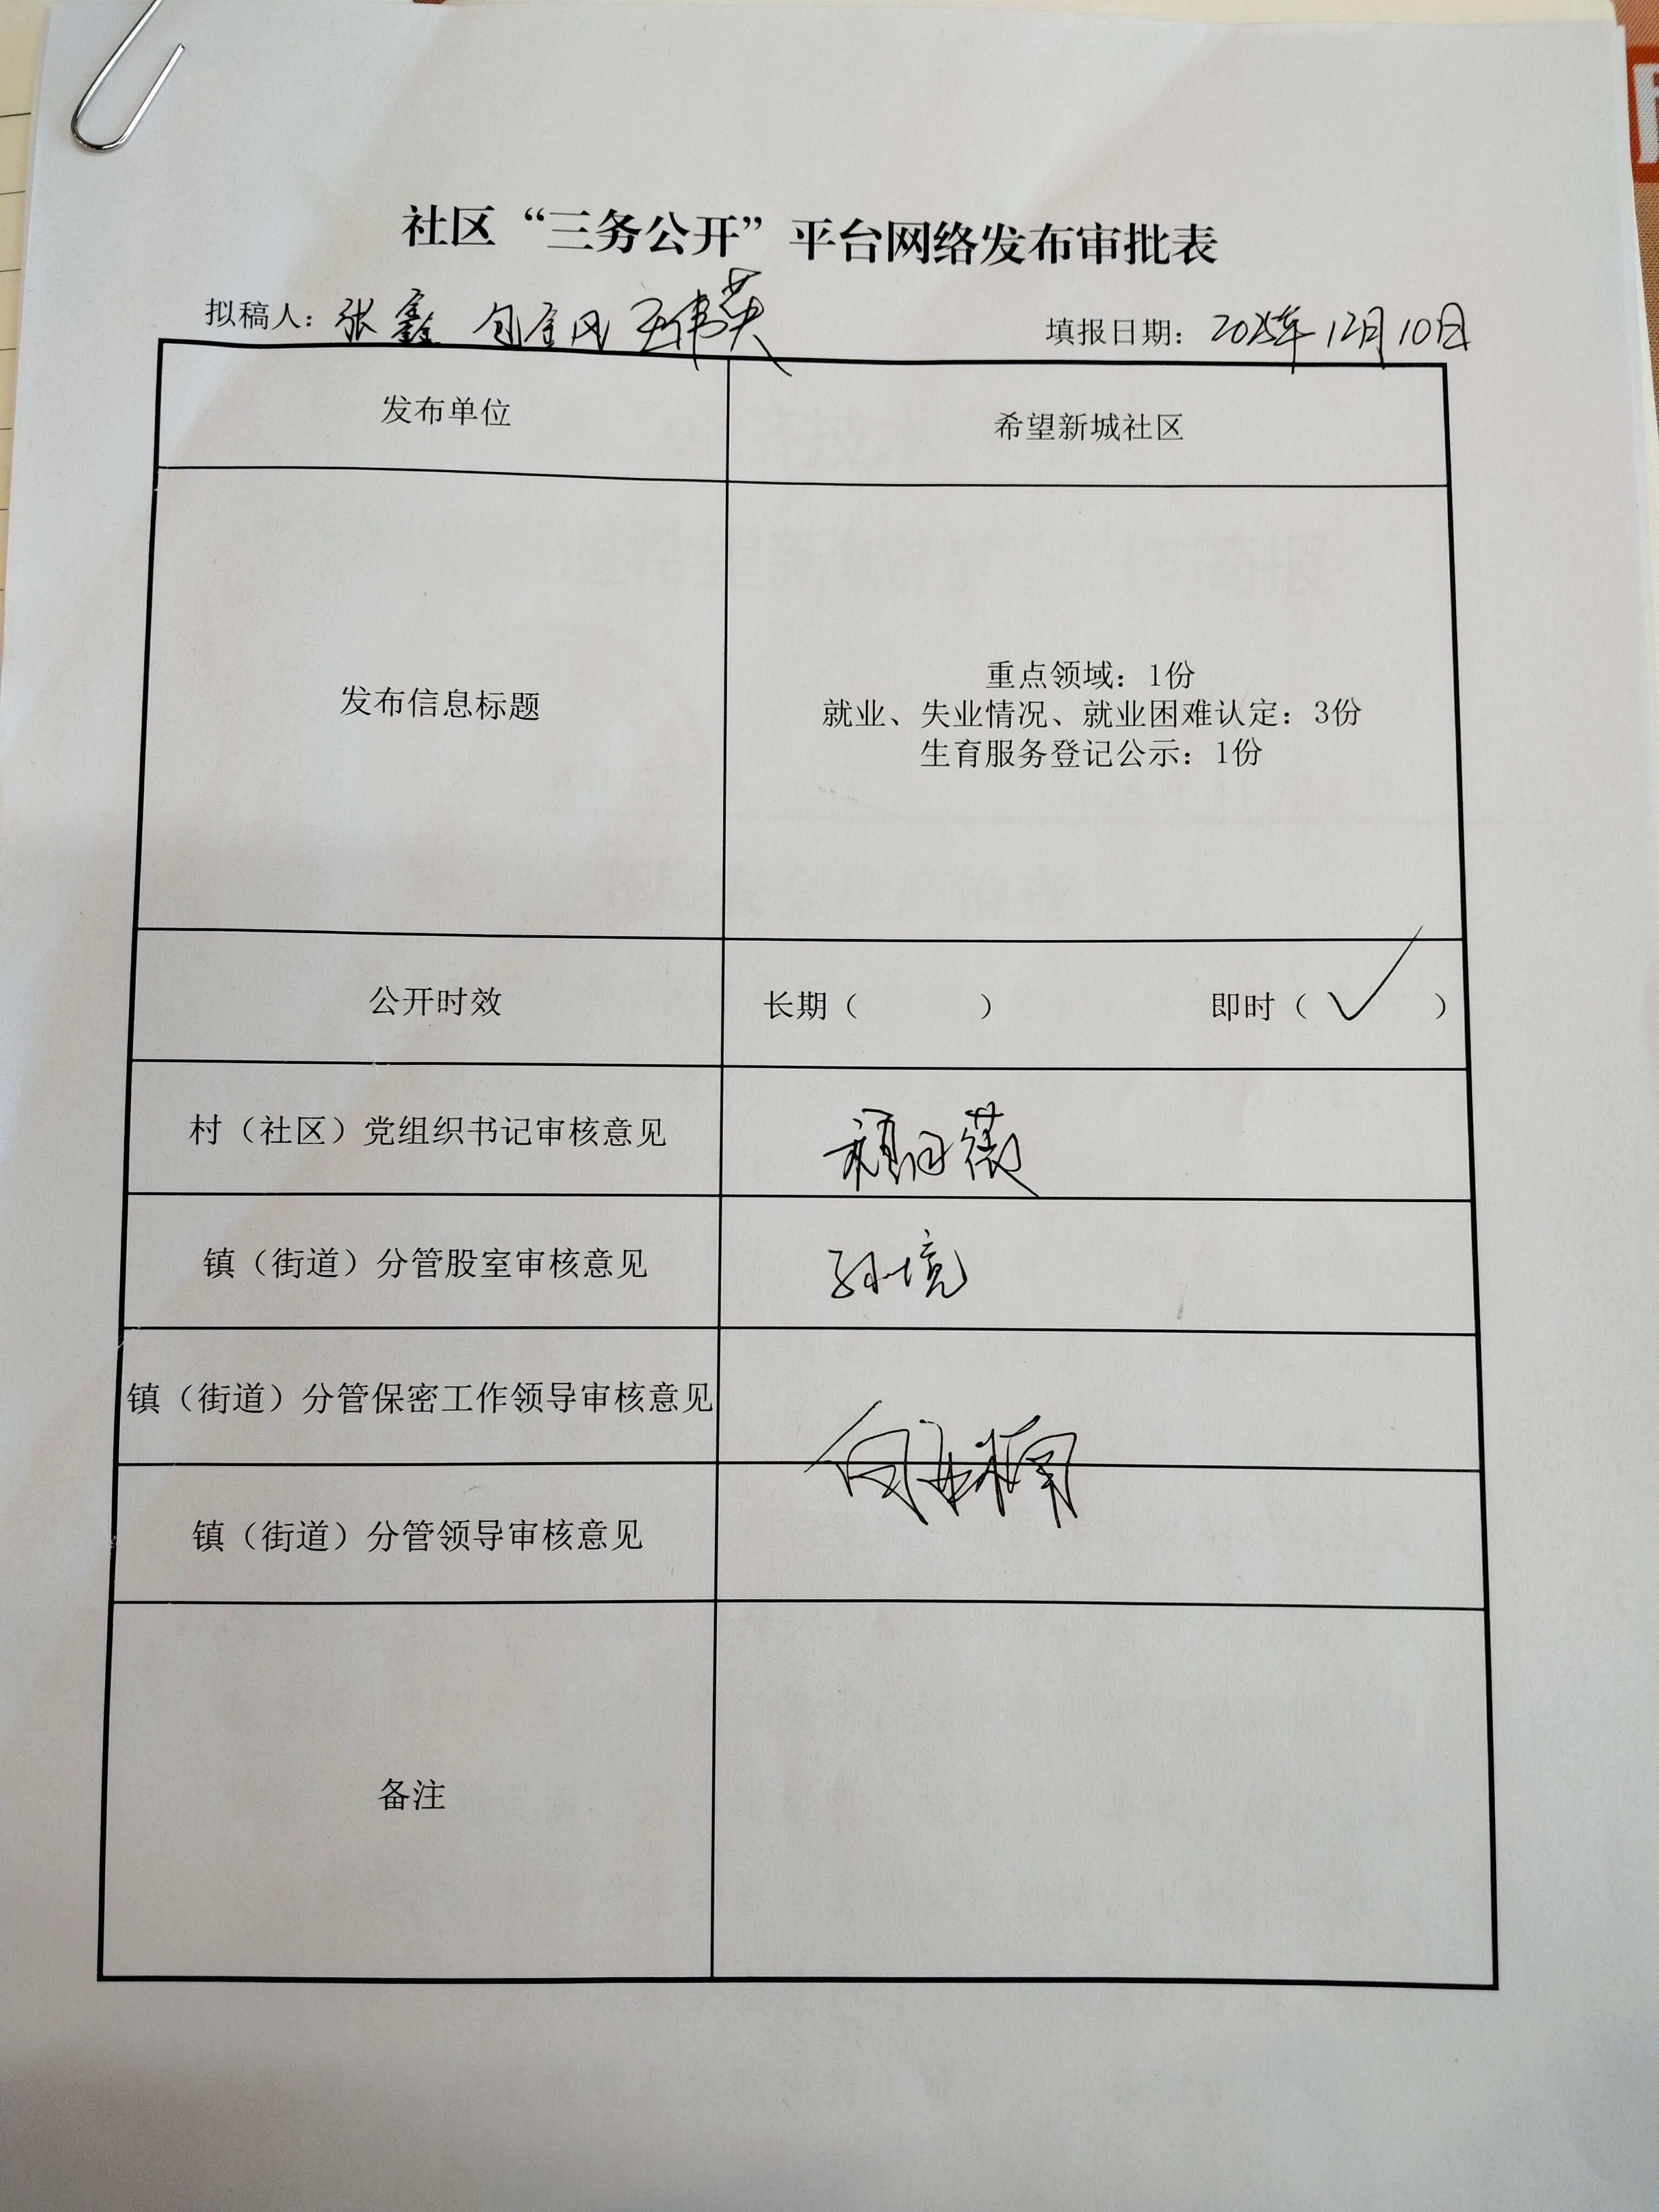 社区“三务公开”平台网络发布审批表
拟稿人：张鑫 包金凤 王伟英 填报日期：2025年12月10日
发布单位 希望新城社区
发布信息标题
重点领域：1份
就业、失业情况、就业困难认定：3份
生育服务登记公示：1份
公开时效 长期（ ） 即时（ √ ）
村（社区）党组织书记审核意见
镇（街道）分管股室审核意见 孙境
镇（街道）分管保密工作领导审核意见
镇（街道）分管领导审核意见
备注